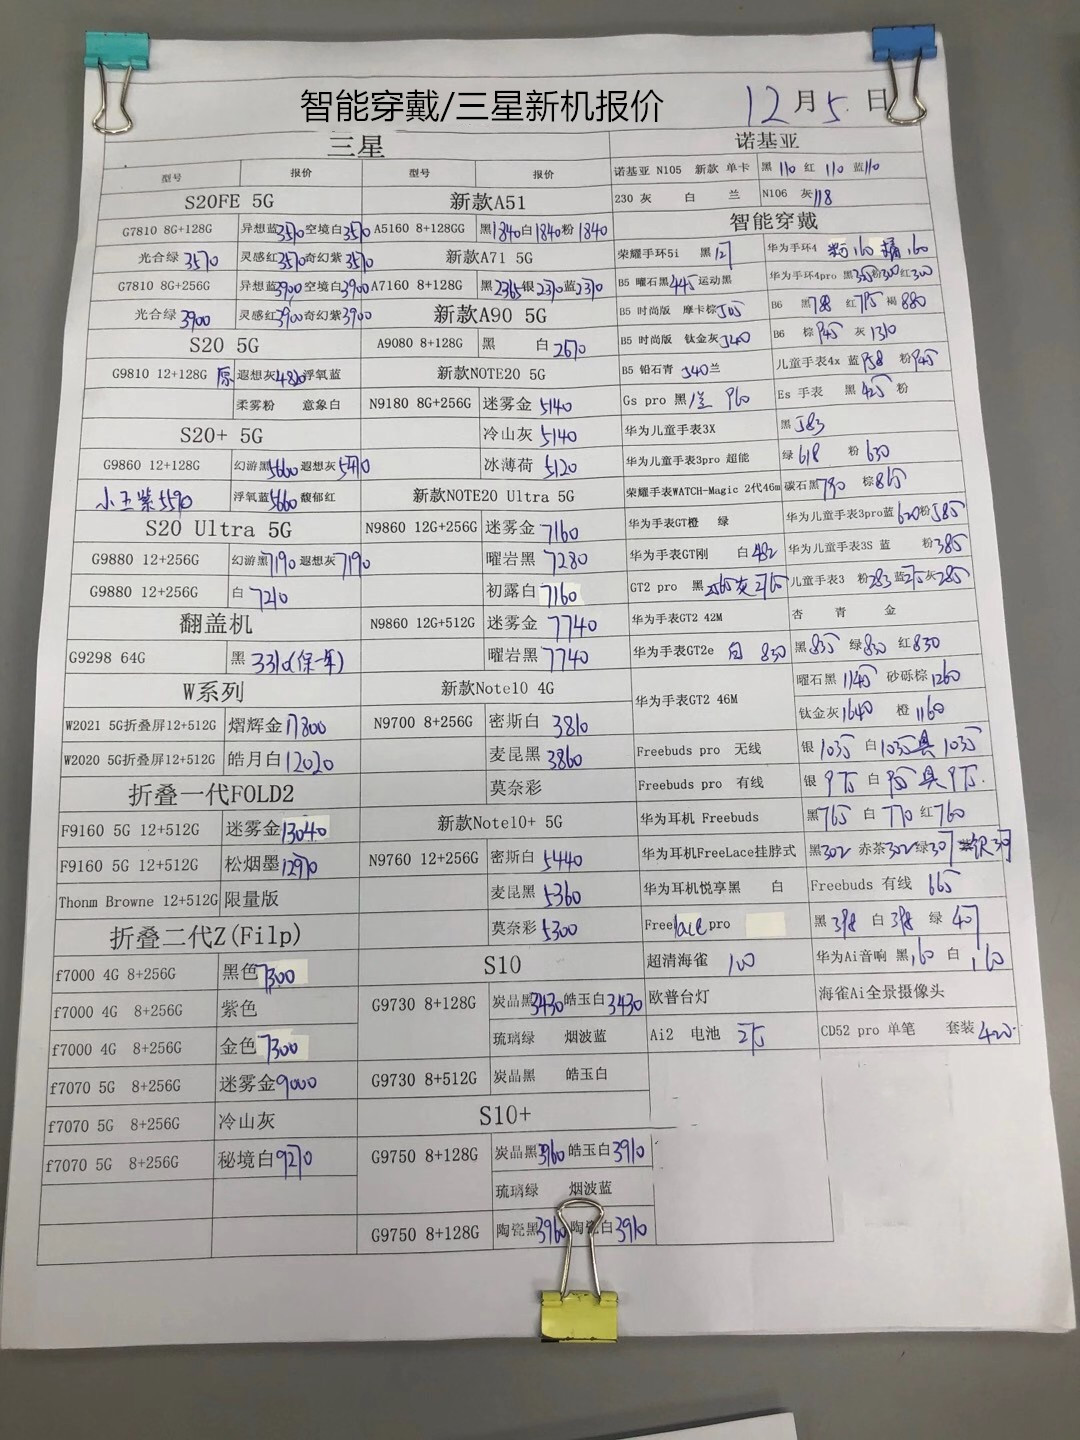 智能穿戴/三星新机报价
12月5日
三星
型号 报价 型号 报价
S20FE 5G
G7810 8G+128G 异想蓝3570 空境白3570
光合绿 3570 灵感红3570 奇幻紫3570
G7810 8G+256G 异想蓝3900 空境白3900
光合绿 3900 灵感红3900 奇幻紫3900
S20 5G
G9810 12+128G 原 遐想灰4820 浮氧蓝
柔雾粉 意象白
S20+ 5G
G9860 12+128G 幻游黑5600 遐想灰5410
小王紫5590 浮氧蓝5660 馥郁红
S20 Ultra 5G
G9880 12+256G 幻游黑7190 遐想灰7190
G9880 12+256G 白 7210
翻盖机
G9298 64G 黑 3310(保一年)
W系列
W2021 5G折叠屏12+512G 熠辉金17300
W2020 5G折叠屏12+512G 皓月白12020
折叠一代FOLD2
F9160 5G 12+512G 迷雾金13040
F9160 5G 12+512G 松烟墨12970
Thonm Browne 12+512G 限量版
折叠二代Z(Filp)
f7000 4G 8+256G 黑色7300
f7000 4G 8+256G 紫色
f7000 4G 8+256G 金色7300
f7070 5G 8+256G 迷雾金9000
f7070 5G 8+256G 冷山灰
f7070 5G 8+256G 秘境白9270
新款A51
A5160 8+128GG 黑1840 白1840 粉1840
新款A71 5G
A7160 8+128G 黑2365 银2370 蓝2370
新款A90 5G
A9080 8+128G 黑 白 2670
新款NOTE20 5G
N9180 8G+256G 迷雾金 5140
冷山灰 5140
冰薄荷 5120
新款NOTE20 Ultra 5G
N9860 12G+256G 迷雾金 7160
曜岩黑 7280
初露白 7160
N9860 12G+512G 迷雾金 7740
曜岩黑 7740
新款Note10 4G
N9700 8+256G 密斯白 3810
麦昆黑 3860
莫奈彩
新款Note10+ 5G
N9760 12+256G 密斯白 5440
麦昆黑 5360
莫奈彩 5300
S10
G9730 8+128G 炭晶黑3430 皓玉白3430
琉璃绿 烟波蓝
G9730 8+512G 炭晶黑 皓玉白
S10+
G9750 8+128G 炭晶黑3960 皓玉白3910
琉璃绿 烟波蓝
G9750 8+128G 陶瓷黑3960 陶瓷白3910
诺基亚
诺基亚 N105 新款 单卡 黑 110 红 110 蓝110
230 灰 白 兰 N106 灰118
智能穿戴
荣耀手环5i 黑 华为手环4 粉160 橘160
B5 曜石黑445 运动黑 华为手环4pro 黑 粉300 红300
B5 时尚版 摩卡棕505 B6 黑788 红 褐 880
B5 时尚版 钛金灰540 B6 棕 945 灰 1310
B5 铅石青 540 兰 儿童手表4x 蓝 958 粉945
Gs pro 黑 960 Es 手表 黑 425 粉
华为儿童手表3X 黑 583
华为儿童手表3pro 超能 绿 618 粉 630
荣耀手表WATCH-Magic 2代46m 碳石黑790 棕865
华为手表GT橙 绿 华为儿童手表3pro蓝 620 粉585
华为手表GT刚 白 482 华为儿童手表3S 蓝 粉 385
GT2 pro 黑 2565 灰 2765 儿童手表3 粉283 蓝275 灰285
华为手表GT2 42M 杏 青 金
华为手表GT2e 白 830 黑 835 绿830 红830
华为手表GT2 46M 曜石黑 1145 砂砾棕1260
钛金灰1640 橙 1160
Freebuds pro 无线 银 1035 白1035 1035
Freebuds pro 有线 银 975 白
华为耳机 Freebuds 黑765 白 770 红760
华为耳机FreeLace挂脖式 黑302 赤茶302 绿307 银
华为耳机悦享黑 白 Freebuds 有线 665
Freelace pro 黑 398 白 398 绿 407
超清海雀 100 华为Ai音响 黑160 白 160
欧普台灯 海雀Ai全景摄像头
Ai2 电池 275 CD52 pro 单笔 套装 420